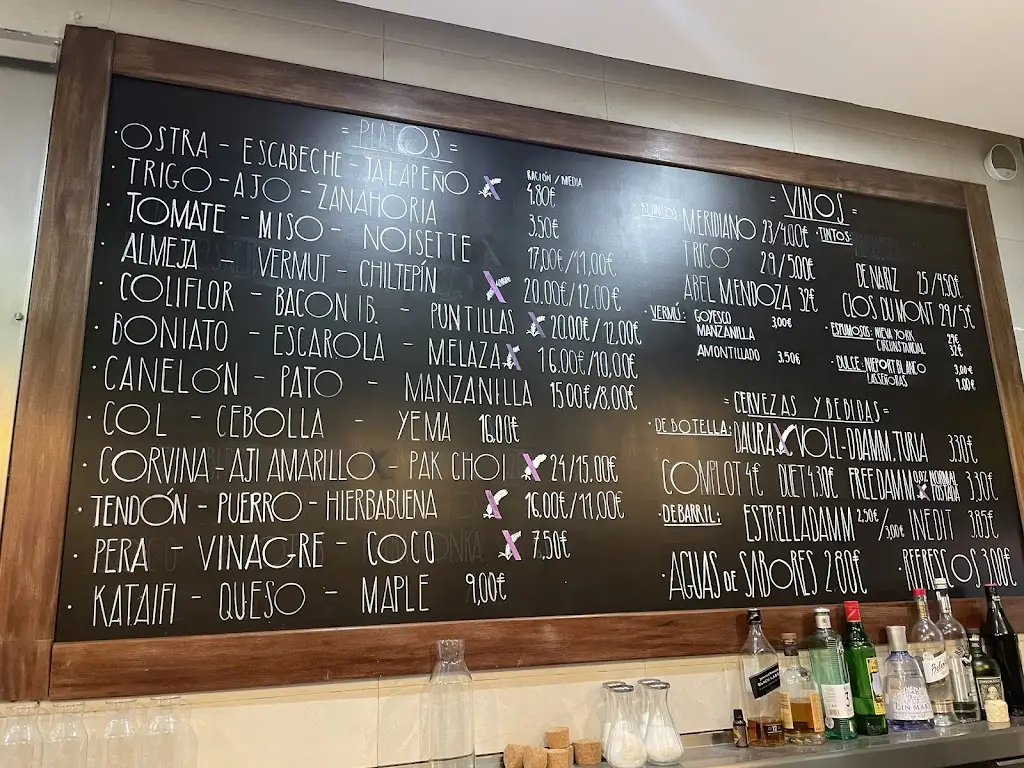 = PLATOS =
RACIÓN / MEDIA
· OSTRA - ESCABECHE - JALAPEÑO 4.80€
· TRIGO - AJO - ZANAHORIA 3.50€
· TOMATE - MISO - NOISETTE 17,00€/11,00€
· ALMEJA - VERMUT - CHILTEPÍN 20.00€/12.00€
· COLIFLOR - BACON IB. - PUNTILLAS 20.00€/12,00€
· BONIATO - ESCAROLA - MELAZA 16.00€/10,00€
· CANELÓN - PATO - MANZANILLA 15.00€/8,00€
· COL - CEBOLLA - YEMA 16.00€
· CORVINA - AJI AMARILLO - PAK CHOI 24/15.00€
· TENDÓN - PUERRO - HIERBABUENA 16.00€/11,00€
· PERA - VINAGRE - COCO 7,50€
· KATAIFI - QUESO - MAPLE 9,00€
= VINOS =
BLANCOS: MERIDIANO 23/4.00€
TRICÓ 29/5.00€
ABEL MENDOZA 32€
· TINTOS:
DE NARIZ 25/4.50€
CLOS DU MONT 29/5€
· VERMÚ: GOYESCO 3,00€
MANZANILLA
AMONTILLADO 3.50€
· ESPUMOSOS: NEW YORK 29€
CIRCUNSTANCIAL 32€
· DULCE: NIEPORT BLANCO 3,00€
LAS SEÑORAS 4.00€
= CERVEZAS Y BEBIDAS =
· DE BOTELLA: DAURA VOLL-DDAMM, TURIA 3.30€
COMPLOT 4€ DUET 4.30€ FREE DAMM 0,0% NORMAL TOSTADA 3,30€
· DE BARRIL: ESTRELLA DAMM 2,50€ / 3,00€ INEDIT 3.85€
· AGUAS DE SABORES 2.80€ · REFRESCOS 3,00€
GIN MARE